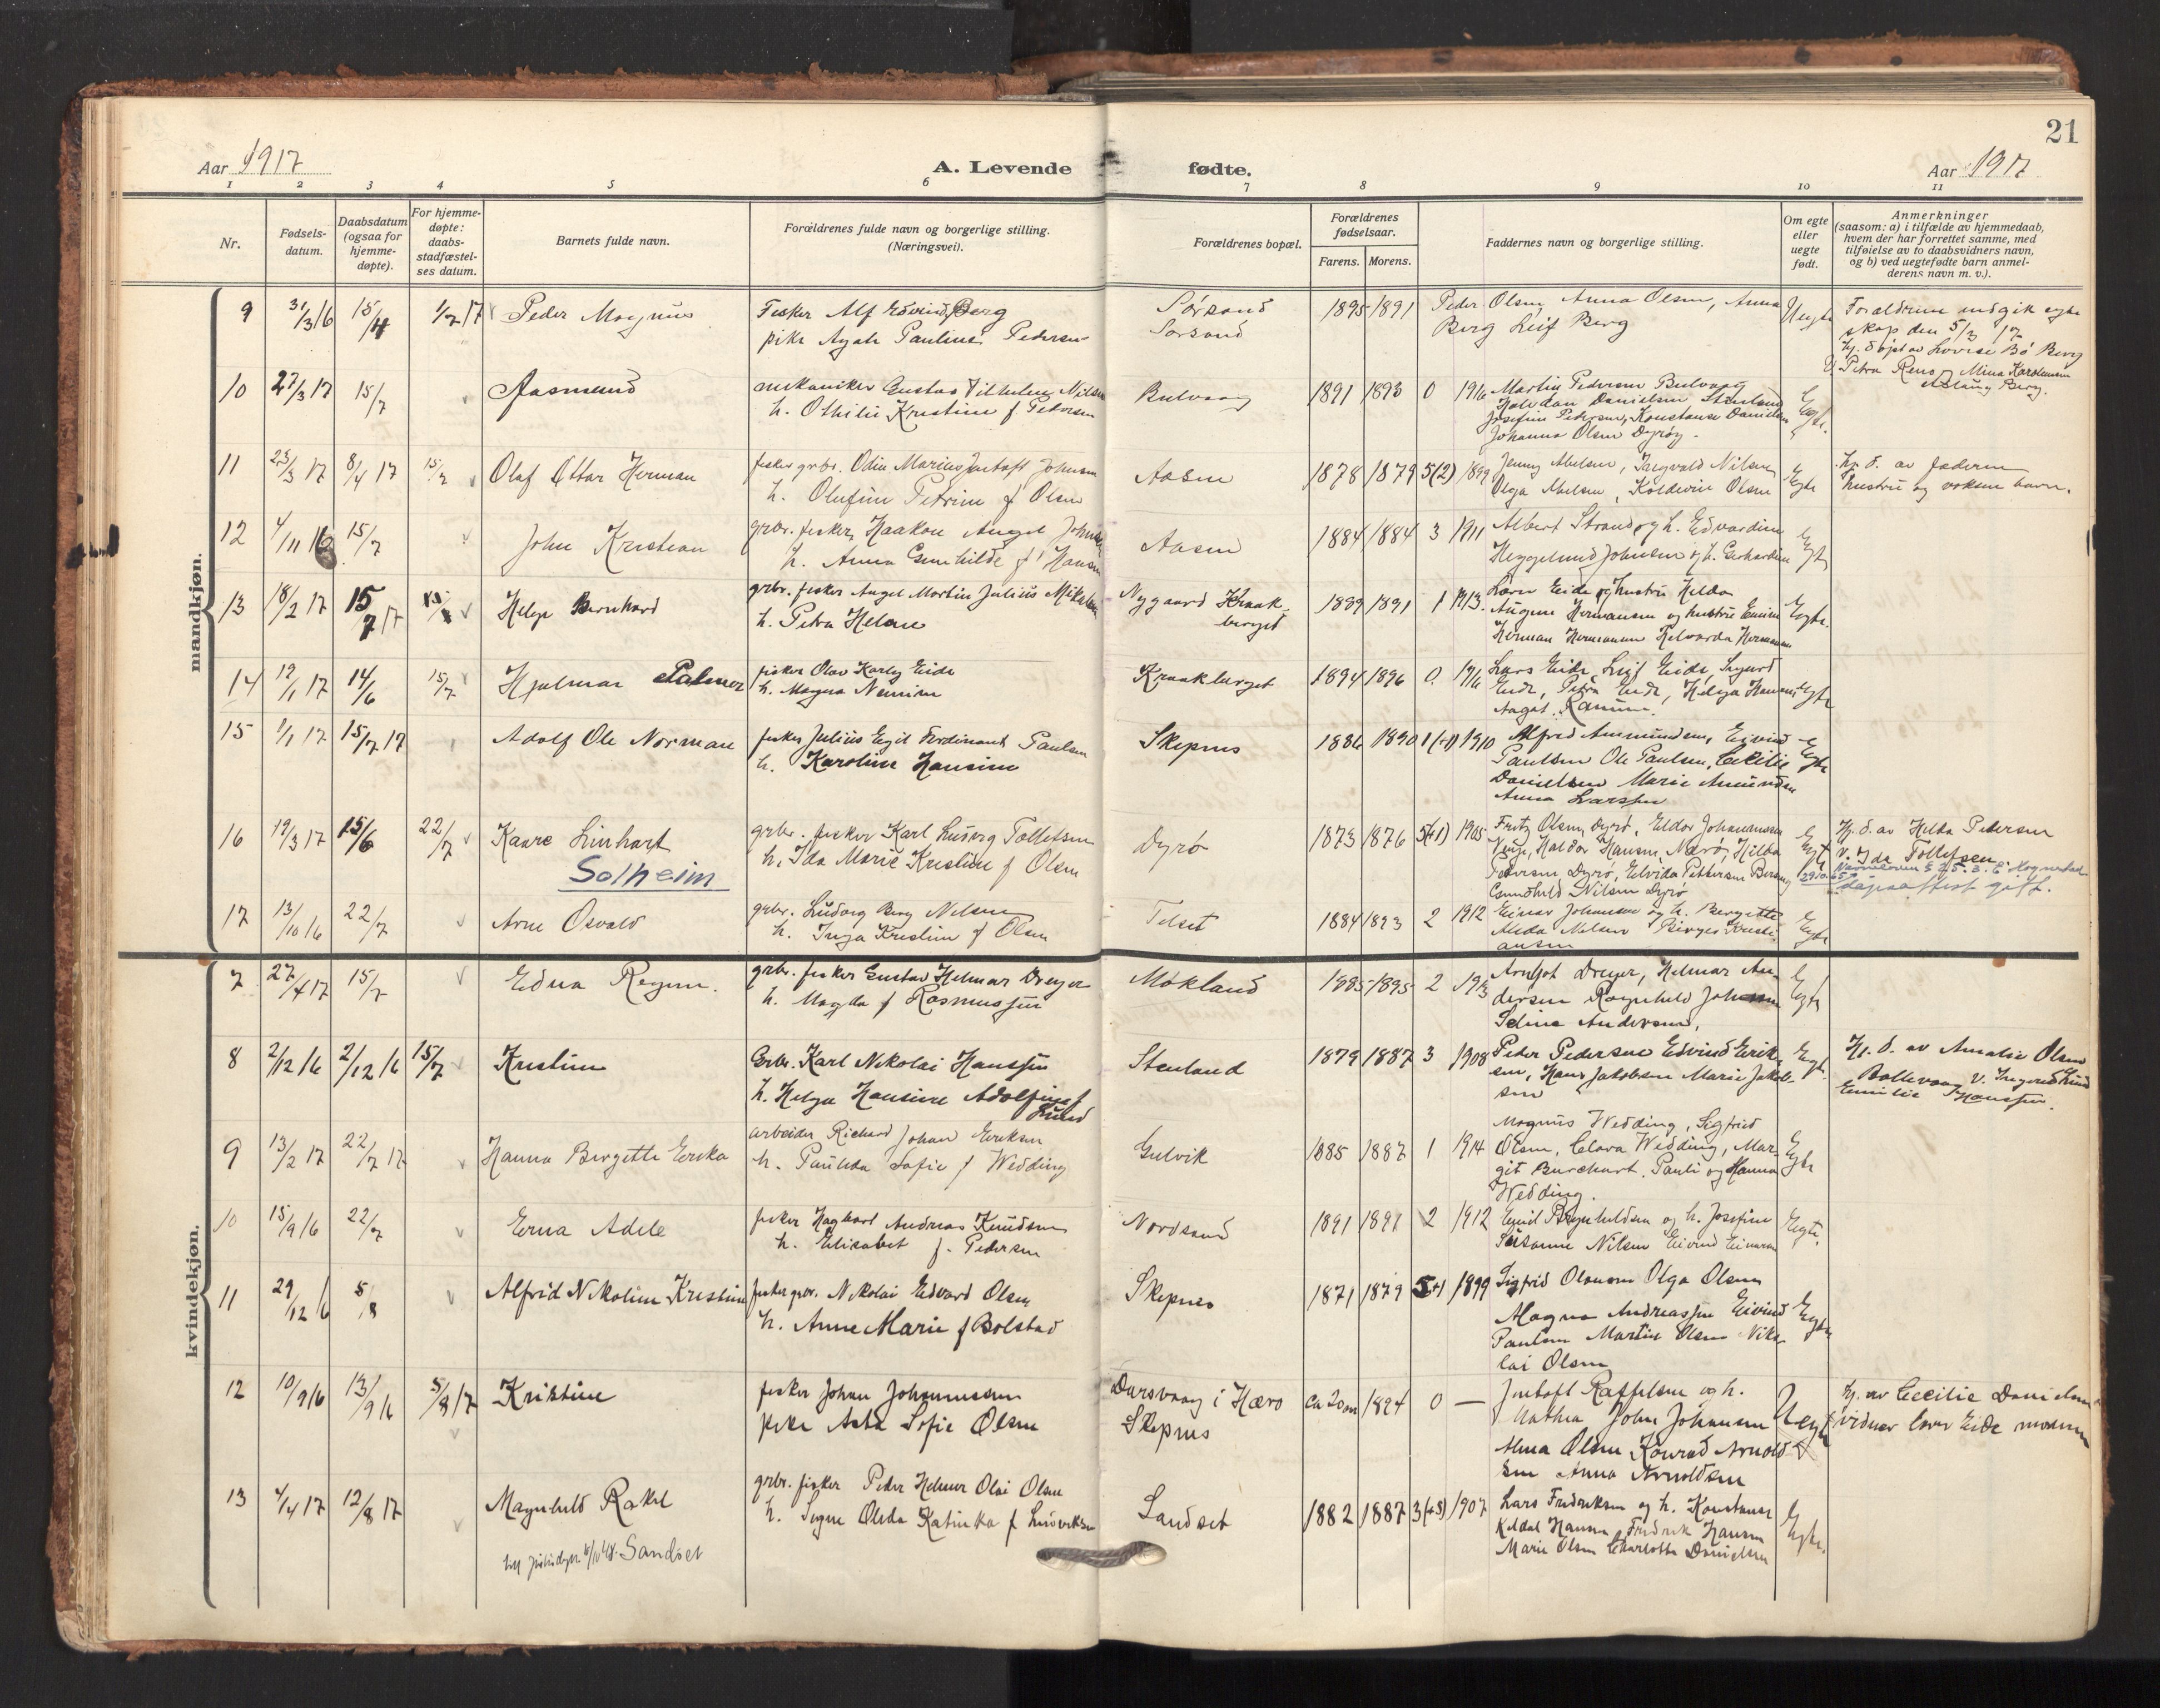 21
Aar 1917
A. Levende fødte.
Aar 1917
1 2 3 4 5 6 7 8 9 10 11
Nr.
Fødsels-
datum.
Daabsdatum
(ogsaa for
hjemme-
døpte).
For hjemme-
døpte:
daabs-
stadfæstel-
ses datum.
Barnets fulde navn.
Forældrenes fulde navn og borgerlige stilling.
(Næringsvei).
Forældrenes bopæl.
Forældrenes
fødselsaar.
Farens. Morens.
Faddernes navn og borgerlige stilling.
Om egte
eller
uegte
født.
Anmerkninger
(saasom: a) i tilfælde av hjemmedaab,
hvem der har forrettet samme, med
tilføielse av to daabsvidners navn,
og b) ved uegtefødte barn anmel-
derens navn m. v.).
mandkjøn.
9 31/3 16 15/4 1/7 17 Peder Magnus
Fisker Alf Edvind Berg
pike Agate Pauline Pedersen
Sørsand
Sørsand
1895 1891
Peder Olsen, Anna Olsen, Anna
Berg Leif Berg
Uegte
Forældrene indgik egte
skap den 5/2 17
Hj. døpt av Lovise Bö Berg
V. Petra Rens, Mina Karolensen
Aslaug Berg.
10 27/3 17 15/7 Aasmund
mekaniker Gustav Vilhelm Nilsen
h. Othilie Kristine f Pedersen
Bulvaag
1891 1893 0 1916
Martin Pedersen Bulvaag
Haldan Danielsen Stenland
Josefine Pedersen, Konstanse Danielsen
Johanna Olsen Dyrøy.
Egte.
11 23/3 17 8/4 17 15/7 Olaf Ottar Herman
fisker grbr. Odin Marius Jentoft Johnsen
h. Olufine Petrine f Olsen
Aasen
1878 1879 5(2) 1899
Jenny Abelsen, Ingvald Nilsen
Olga Abelsen, Koldevin Olsen
Egte
Hj. d. av faderen
hustru og voksen barn.
12 4/11 16 15/7 John Kristian
grbr. fisker Haakon Angel Johnsen
h. Anna Gunhilde f Hansen
Aasen
1884 1884 3 1911
Albert Strand og h. Edvardine
Heggelund Johnsen og h. Gerhardine
Egte
13 18/2 17 15/7 17 Helge Bernhard
grbr. fisker Angel Martin Julius Mikalsen
h. Petra Helene
Nygaard Kraak-
berget
1889 1891 1 1913.
Lars Eide og hustru Helda
Augene Hermansen og hustru Emma
Herman Hermansen Helvarda Hermansen
Egte.
14 12/1 17 14/6 15/7 Hjalmar Palmer
fisker Olav Karley Eide
h. Magna Nennien
Kraakberget
1894 1896 0. 1916
Lars Eide, Leif Eide, Sigurd
Eide, Petra Eide, Helga Hansen
Aagot.
Egte
15 1/1 17 15/7 17 Adolf Ole Norman
fisker Julius Egil Ferdinand Paulsen
h. Karoline Hansine
Skepnes
1886 1890 1(+1) 1910
Alfred Ammundsen, Eivind
Paulsen Ole Paulsen, Cecilie
Danielsen Marie Amundsen
Anna Larsen
Egte
16 19/3 17 15/6 22/7 Kaare Linhart
Solheim
grbr. fisker Karl Ludvig Tollefsen
h. Ida Marie Kristine f Olsen
Dyrø
1873 1876 5(+1) 1905
Fritz Olsen Dyrø, Eldor Johannessen
Haldor Hansen, Nærø, Hilda
Pedersen Dyrø, Elvida Pettersen
Gundhild Nilsen Dyrø
Egte
Hj. d. av Helda Pedersen
v. Ida Tollefsen.
17 13/10 16 22/7 Arne Osvald
grbr. Ludvig Berg Nilsen
h. Inga Kristine f Olsen
Telset
1884 1893 2 1912
Einar Johansen og h. Bergitte
Alida Nilsen Birger Kristi-
ansen
Egte
kvindekjøn.
7 27/4 17 15/7 Edna Regine.
grbr. fisker Gustav Helmar Dreyer
h. Magda f Rasmussen
Mokland
1885 1895 2 1913
Arnfot Dreyer, Helmar An-
dersen Ragnhild Johansen
Selina Andersen,
Egte
8 2/12 16 2/12 16 15/7 Kristine
Grbr. Karl Nikolai Hanssen
h. Helga Hansine Adolfine f
Lund
Stenland
1879 1887 3 1908
Peder Pedersen Edvind Erik-
sen, Hans Jakobsen Marie Jakob-
sen
Egte.
Hj. d. av Amalie Olsen
Ballevaag V. Ingvard Lund
Emilie Hanssen.
9 13/2 17 22/7 17 Hanna Bergitte Erika
arbeider Richard Johan Eriksen
h. Paulda Sofie f Wedding
Gulvik
1885 1887 1 1914
Magnus Wedding, Sigfrid
Olsen, Clara Wedding, Mar-
git Burchart. Pauli og Hanna
Wedding.
Egte
10 15/9 16 22/7 Erna Adele
fisker Hagbart Andreas Knudsen
h. Elisabet f. Pedersen
Nordsand
1891 1891 2 1912
Emil Brynhildsen og h. Josefine
Susanne Nilsen Eivind Einarsen
Egte.
11 29/12 16 5/8 Alfrid Nikoline Kristine
fisker grbr. Nikolai Edvard Olsen
h. Anne Marie f Bolstad
Skepnes
1871 1879 5+1 1899
Sigfrid Olausen Olga Olsen
Magna Andreassen Eivind
Paulsen Martin Olsen Niko-
lai Olsen
Egte
12 10/9 16 13/9 16 5/8 17 Kristine
fisker Johan Johannessen
pike Asta Sofie Olsen
Dursvaag i Hærø
Skepnes
ca 20 aar 1894 0 —
Jentoft Raffelsen og h.
Mathea John Johansen
Alma Olsen Konrad Arnold-
sen Anna Arnoldsen
Uegte
Hj. av Cecilie Danielsen
vidner Lars Eide moderen
13 4/4 17 12/8 17 Magnhild Rakel
Sandset
grbr. fisker Peder Helmer Olai Olsen
h. Signe Olida Katinka f Ludvigsen
Sandset
1882 1887 3(+3) 1907
Lars Fredriksen og h. Konstanse
Keldal Hansen Fredrik Hansen
Marie Olsen Charlotte Danielsen
Egte.